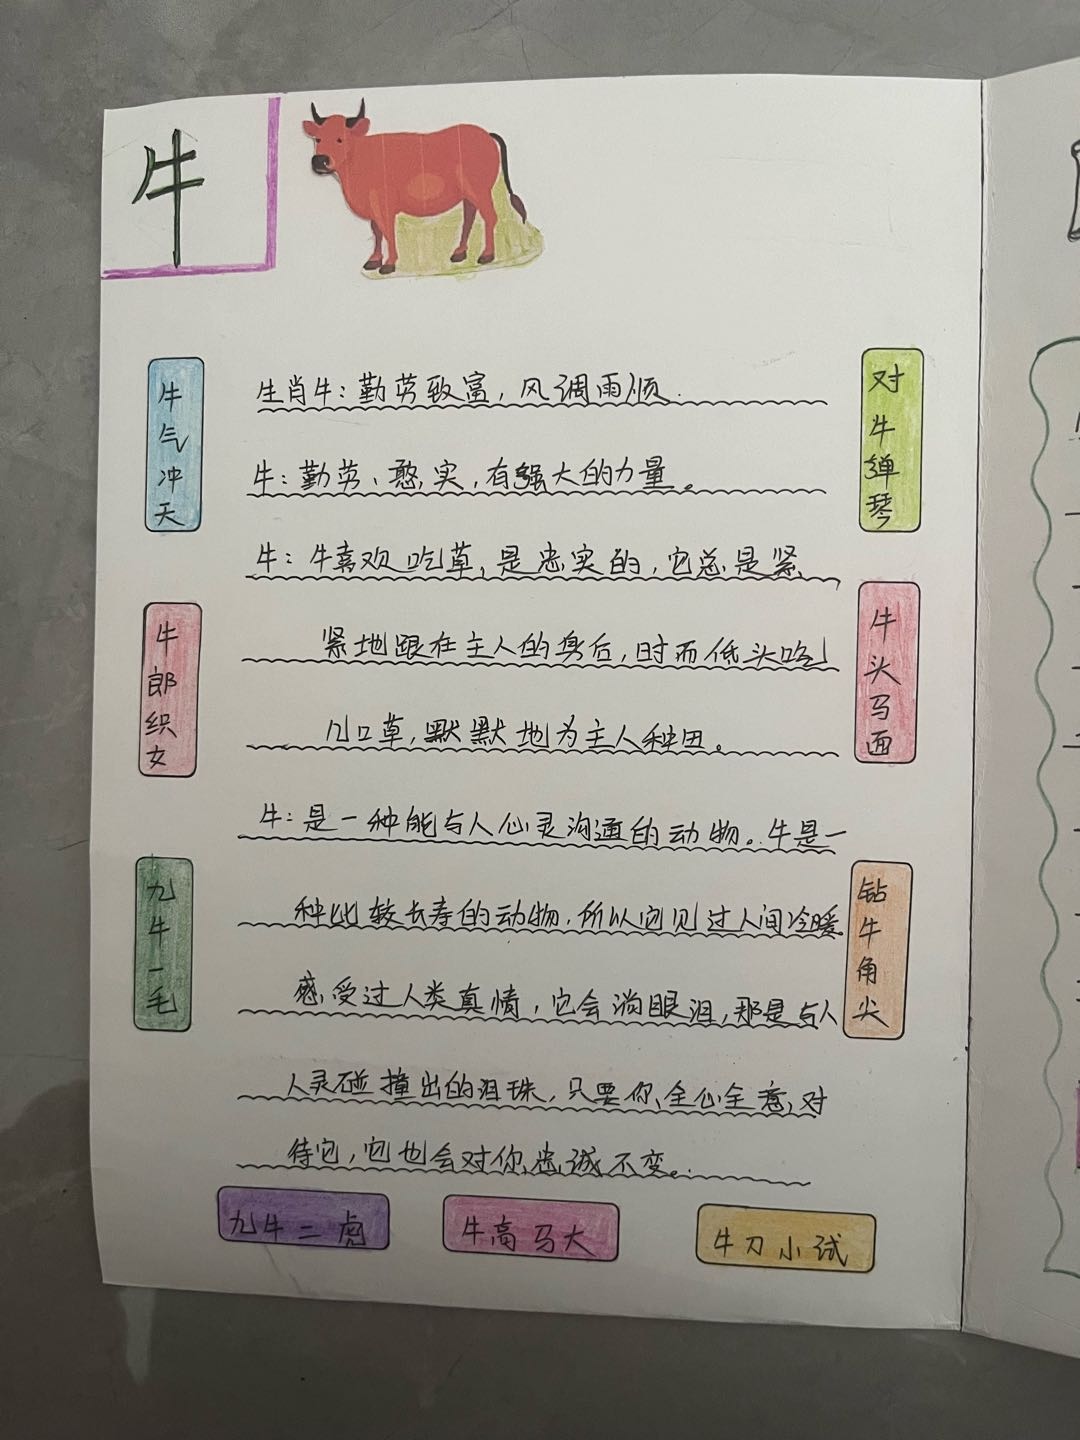 牛
生肖牛：勤劳致富，风调雨顺.
牛：勤劳、憨实，有强大的力量。
牛：牛喜欢吃草，是忠实的，它总是紧
紧地跟在主人的身后，时而低头吃
几口草，默默地为主人种田。
牛：是一种能与人心灵沟通的动物。牛是一
种比较长寿的动物，所以它见过人间冷暖。
感受过人类真情，它会淌眼泪，那是与人
人灵碰撞出的泪珠，只要你全心全意对
待它，它也会对你忠诚不变。
牛气冲天
牛郎织女
九牛一毛
对牛弹琴
牛头马面
钻牛角尖
九牛二虎
牛高马大
牛刀小试